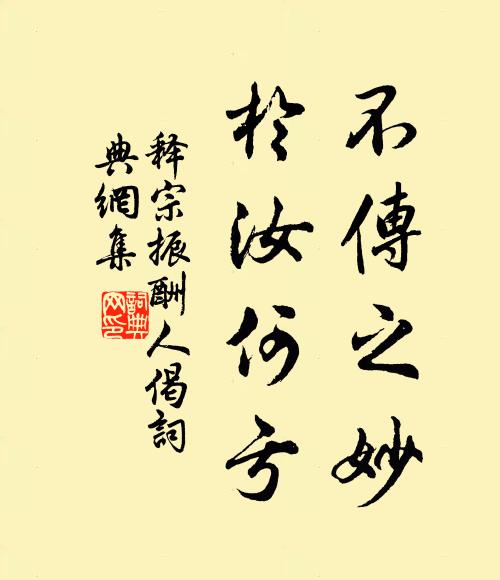 不傳之妙
於汝何亏
释宗振酬人偈詞
典網集
詞典
网印